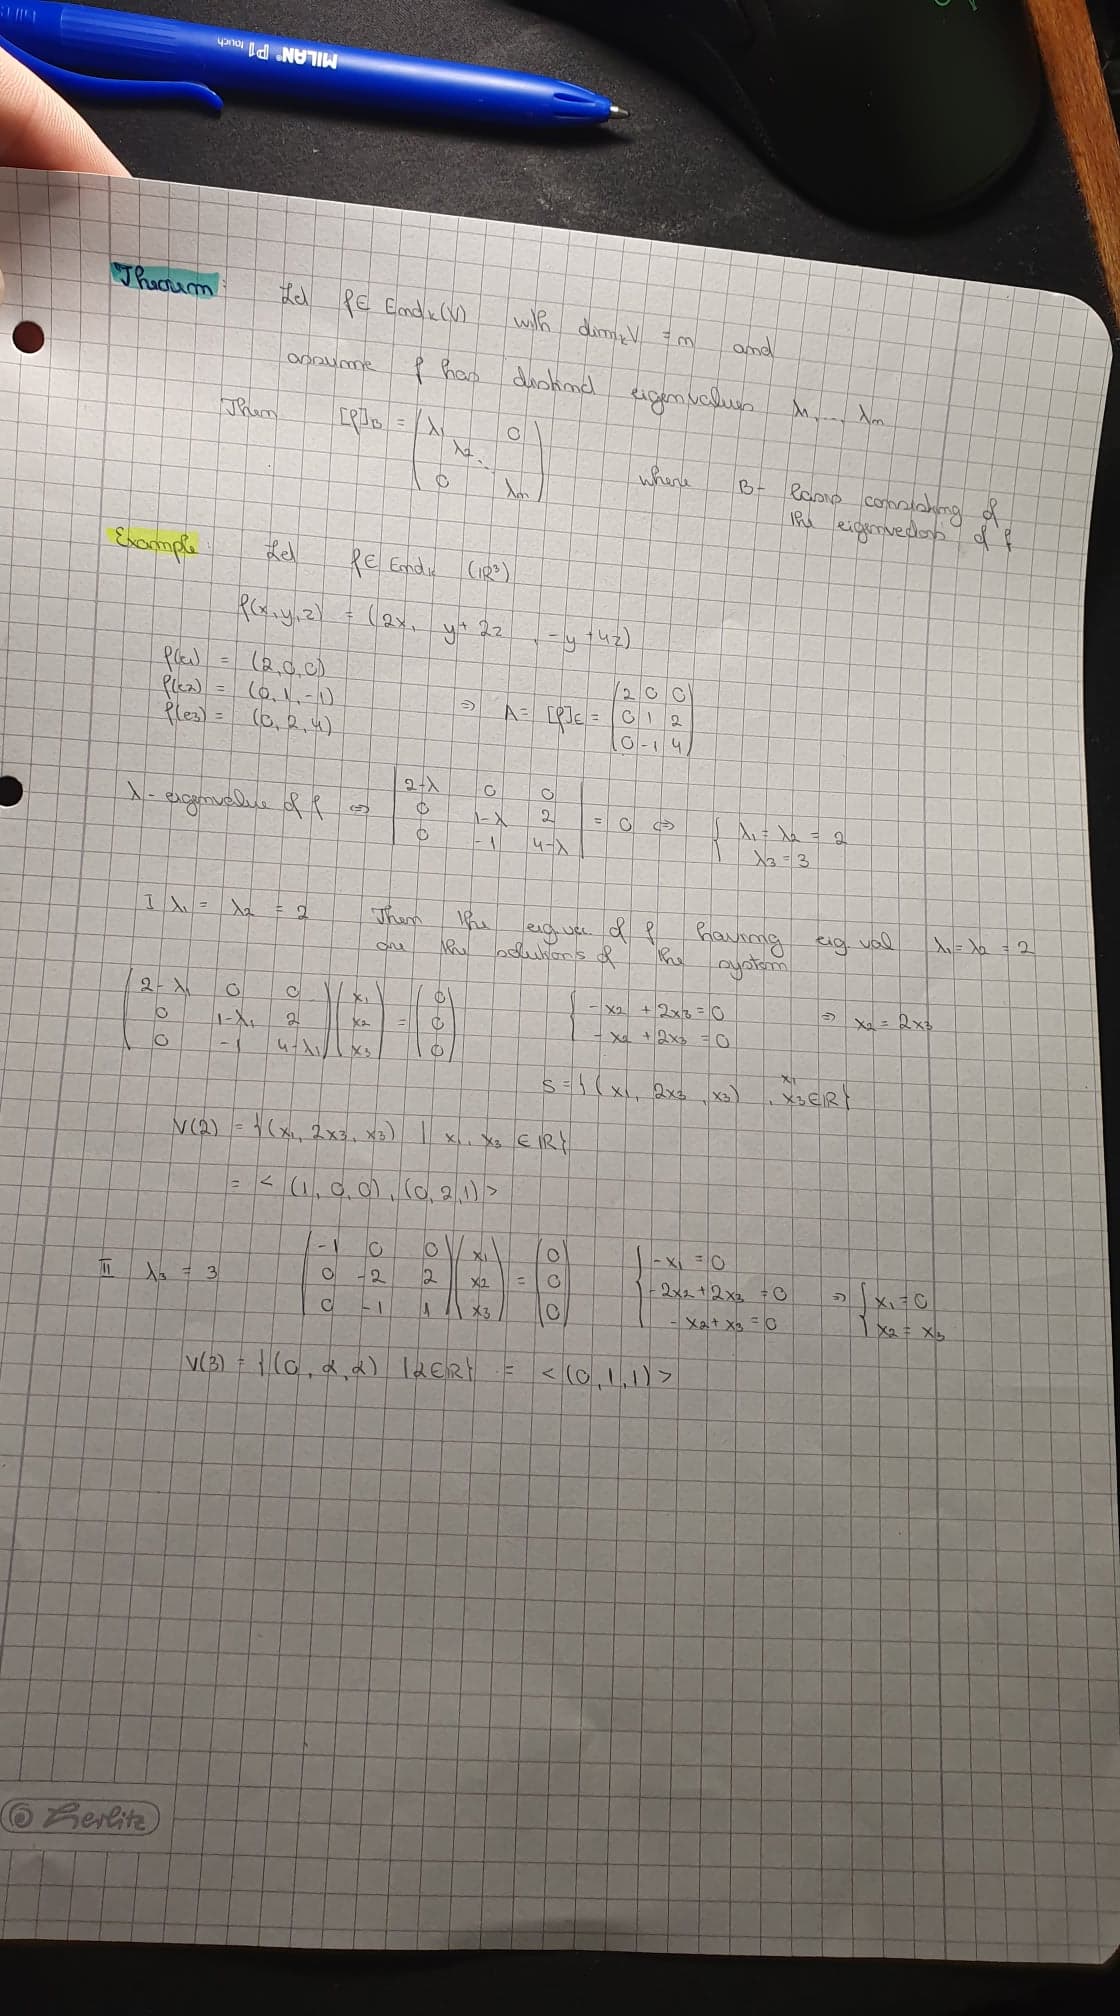 MILAN® P1 touch
Theorem: Let f ∈ End_K(V) with dim_K V = n and
assume f has distinct eigenvalues λ1, ..., λn
Then [f]_B = (λ1 0
λ2...
0 λn)
where B - basis consisting of
the eigenvectors of f
Example: Let f ∈ End_K (ℝ³)
f(x,y,z) = (2x, y+2z, -y+4z)
f(e1) = (2,0,0)
f(e2) = (0,1,-1)
f(e3) = (0,2,4)
=> A = [f]_E = (2 0 0
0 1 2
0 -1 4)
λ - eigenvalue of f <=> |2-λ 0 0
0 1-λ 2
0 -1 4-λ| = 0 <=> { λ1 = λ2 = 2
λ3 = 3
I λ1 = λ2 = 2 Then the eig vec of f having eig val λ1 = λ2 = 2
are the solutions of the system
(2-λ1 0 0
0 1-λ1 2
0 -1 4-λ1) (x1
x2
x3) = (0
0
0)
{ -x2 + 2x3 = 0
-x2 + 2x3 = 0 => x2 = 2x3
S = {(x1, 2x3, x3), x1, x3 ∈ ℝ}
V(2) = {(x1, 2x3, x3) | x1, x3 ∈ ℝ}
= < (1,0,0), (0,2,1) >
II λ3 = 3 (-1 0 0
0 -2 2
0 -1 1) (x1
x2
x3) = (0
0
0)
{ -x1 = 0
-2x2 + 2x3 = 0
-x2 + x3 = 0 => { x1 = 0
x2 = x3
V(3) = {(0, α, α) | α ∈ ℝ} = < (0,1,1) >
© Herlitz